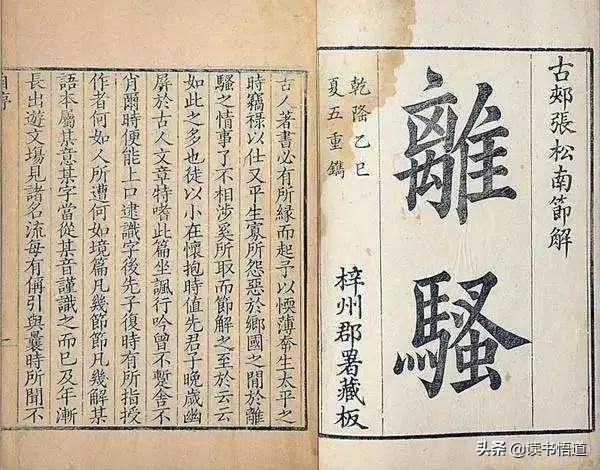 古郟張松南節解
離騷
乾隆乙巳
夏五重鐫
梓州郡署藏板
古人著書必有所緣而起予以愞薄幸生太平之
時竊祿以仕又平生寡所怨惡於鄉國之間於離
騷之情事了不相涉奚所取而節解之至於云云
如此之多也徒以小在懷抱時值先君子晚歲幽
屏於古人文章特嗜此篇坐諷行吟曾不蹔舍不
肖爾時便能上口逮識字後先子復時有所指授
作者何如人所遭何如境篇凡幾節節凡幾解某
語本屬某意某字當從某音謹識之而已及年漸
長出遊文場見諸名流每有偁引與曩時所聞不
头条 @读书悟道